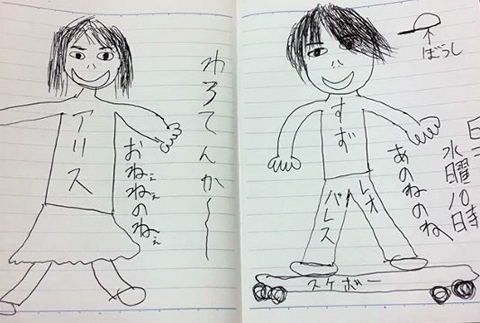 アリス
おねぇねぇのねぇ
わろてんか〜
ぼうし
すず
レオ
パレス
あのねのね
水曜10時
スケボー